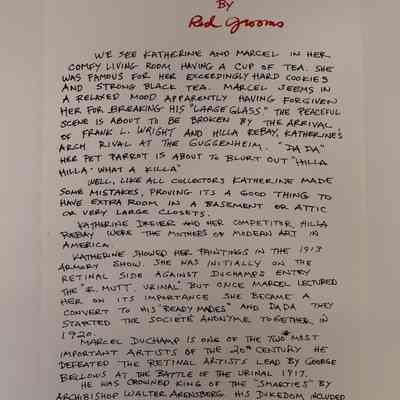 BY
Red Grooms
WE SEE KATHERINE AND MARCEL IN HER
COMFY LIVING ROOM HAVING A CUP OF TEA. SHE
WAS FAMOUS FOR HER EXCEEDINGLY HARD COOKIES
AND STRONG BLACK TEA. MARCEL SEEMS IN
A RELAXED MOOD APPARENTLY HAVING FORGIVEN
HER FOR BREAKING HIS "LARGE GLASS" THE PEACEFUL
SCENE IS ABOUT TO BE BROKEN BY THE ARRIVAL
OF FRANK L. WRIGHT AND HILLA REBAY, KATHERINE'S
ARCH RIVAL AT THE GUGGENHEIM. "DA DA"
HER PET PARROT IS ABOUT TO BLURT OUT "HILLA
HILLA - WHAT A KILLA"
WELL, LIKE ALL COLLECTORS KATHERINE MADE
SOME MISTAKES, PROVING ITS A GOOD THING TO
HAVE EXTRA ROOM IN A BASEMENT OR ATTIC
OR VERY LARGE CLOSETS.
KATHERINE DREIER AND HER COMPETITOR, HILLA
REBAY WERE THE MOTHERS OF MODERN ART IN
AMERICA.
KATHERINE SHOWED HER PAINTINGS IN THE 1913
ARMORY SHOW. SHE WAS INITIALLY ON THE
RETINAL SIDE AGAINST DUCHAMPS ENTRY
THE "R. MUTT. URINAL" BUT ONCE MARCEL LECTURED
HER ON ITS IMPORTANCE SHE BECAME A
CONVERT TO HIS "READY MADES" AND DADA THEY
STARTED THE SOCIETÉ ANONYME TOGETHER, IN
1920.
MARCEL DUCHAMP IS ONE OF THE TWO MOST
IMPORTANT ARTISTS OF THE 20TH CENTURY HE
DEFEATED THE RETINAL ARTISTS LEAD BY GEORGE
BELLOWS AT THE BATTLE OF THE URINAL 1917.
HE WAS CROWNED KING OF THE "SMARTIES" BY
ARCHBISHOP WALTER ARENSBERG HIS DUKEDOM INCLUDED